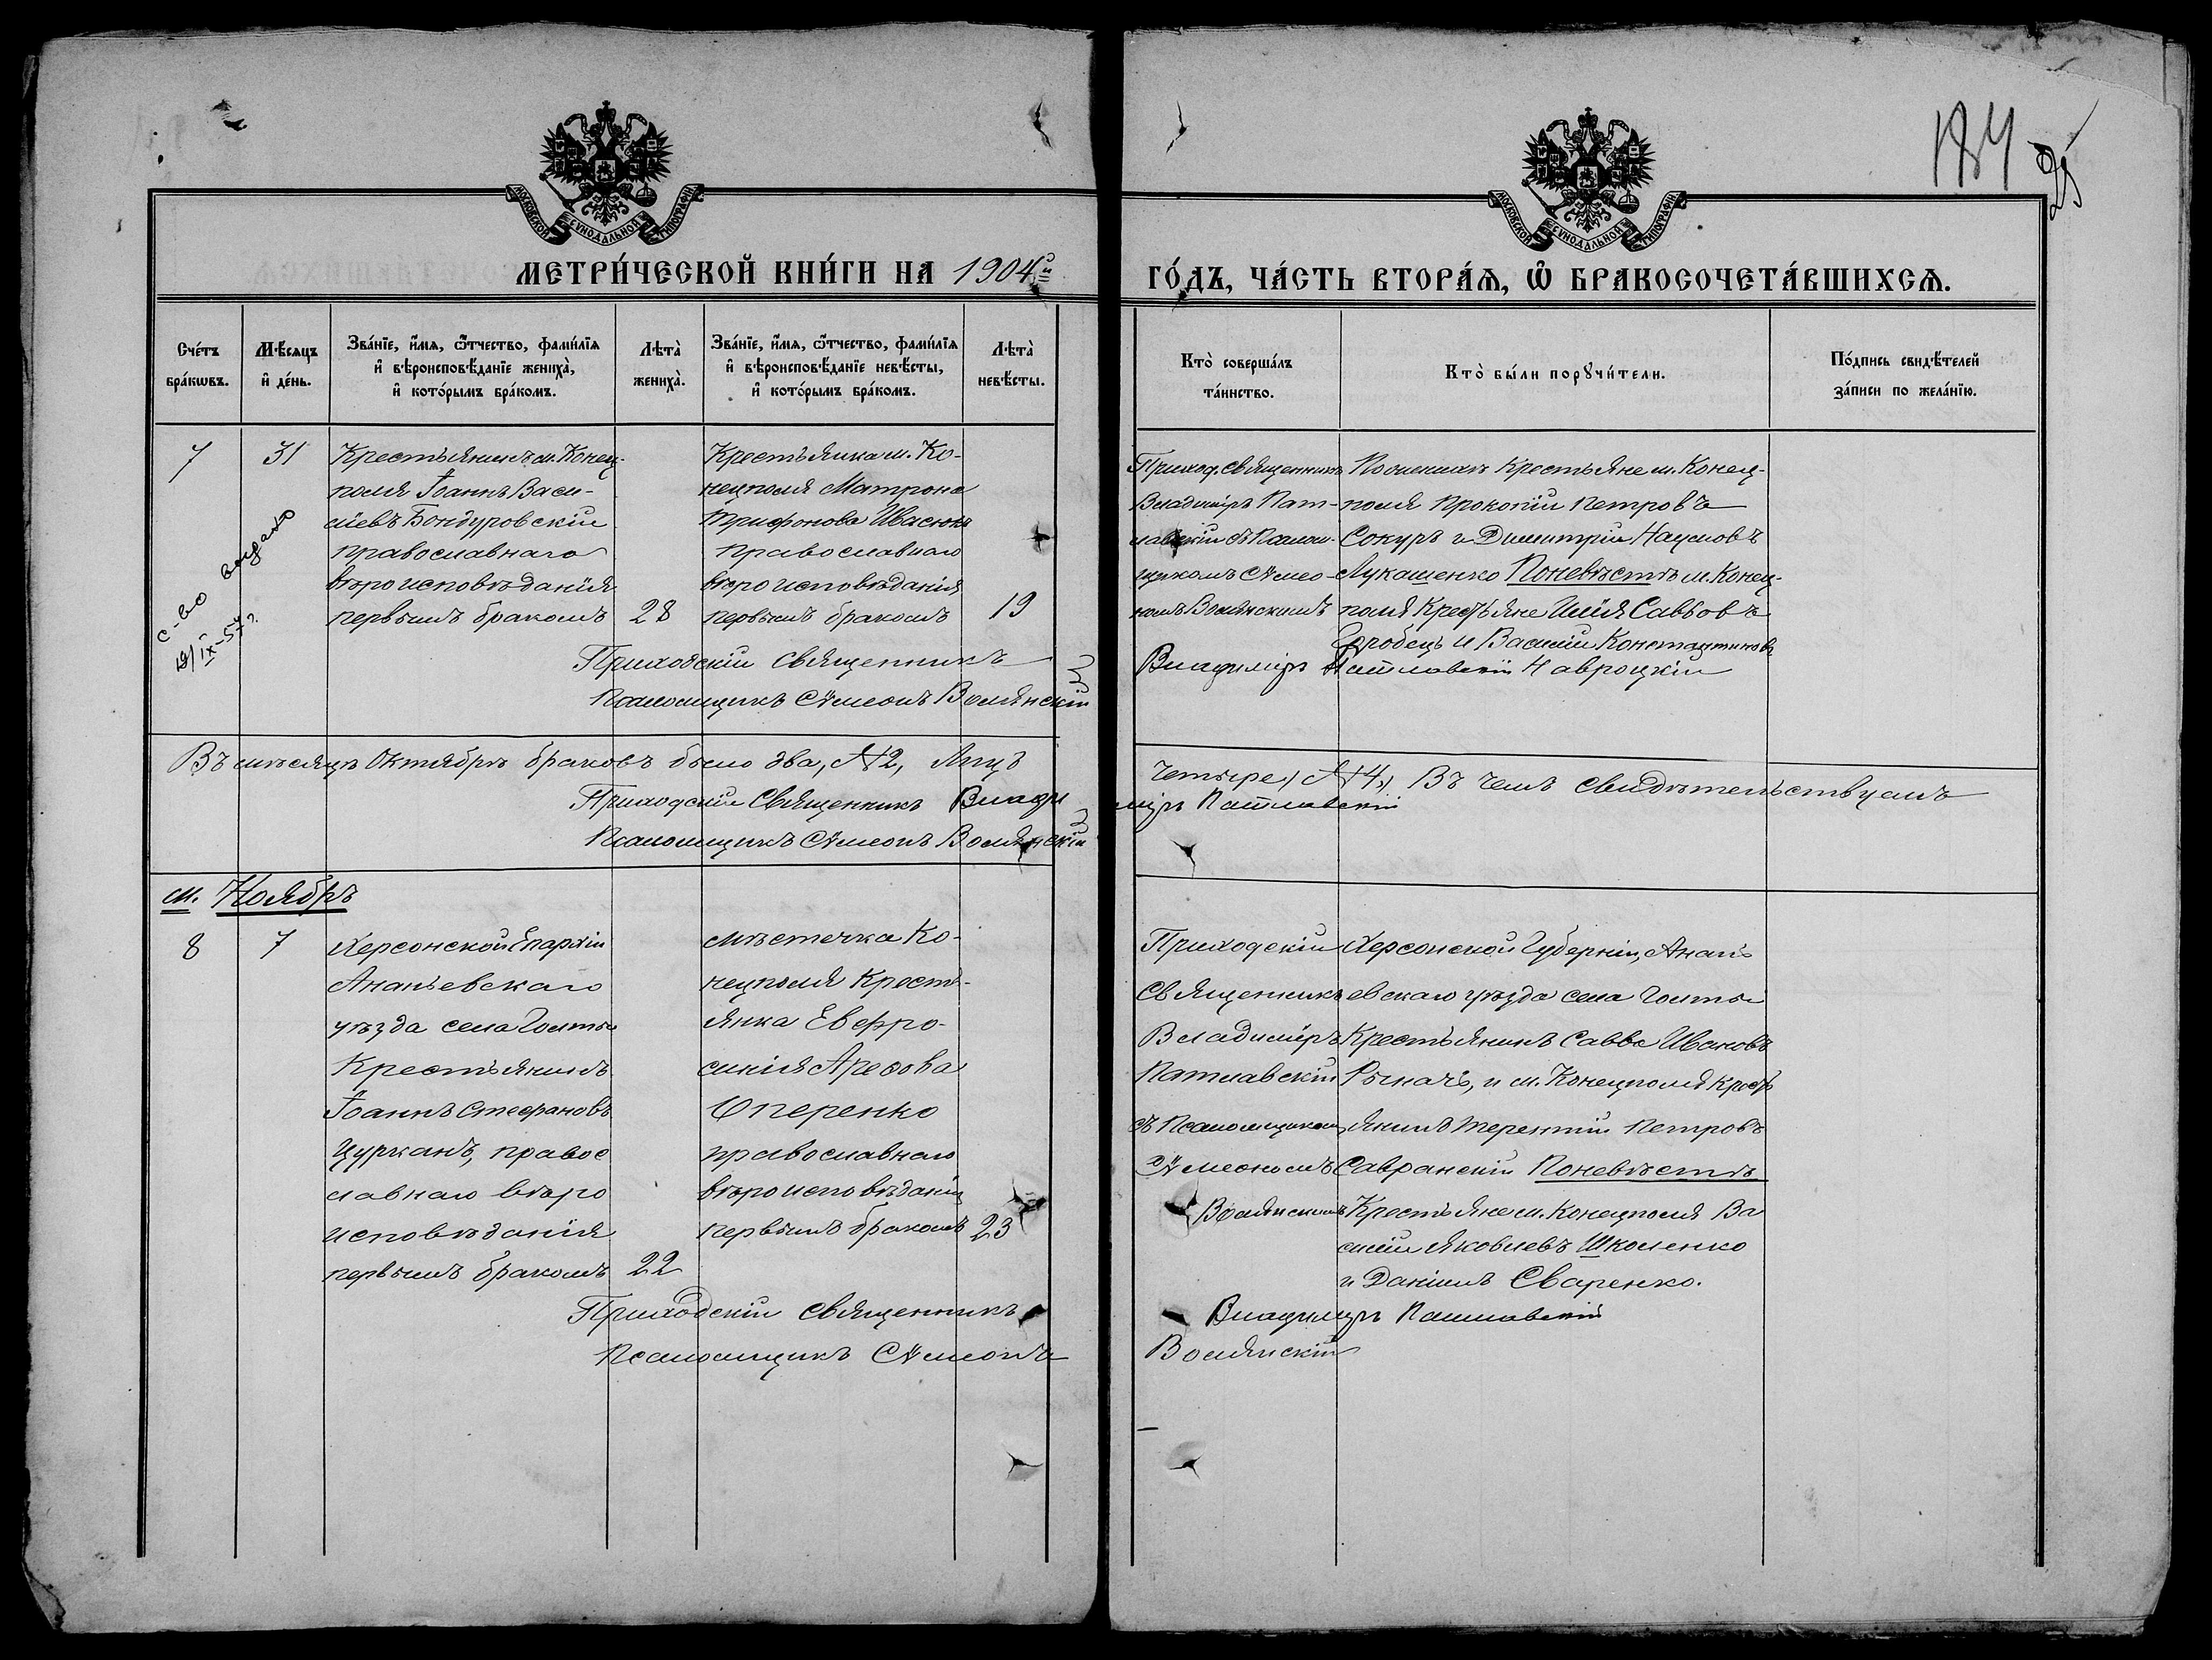 184
25
МОСКОВСКОЙ СѴНОДАЛЬНОЙ ТИПОГРАФІИ
МОСКОВСКОЙ СѴНОДАЛЬНОЙ ТИПОГРАФІИ
МЕТРИ́ЧЕСКОЙ КНИ́ГИ НА 1904й
ГО́ДЪ, ЧА́СТЬ ВТОРА́Ѧ, Ѽ БРАКОСОЧЕТА́ВШИХСѦ.
Сче́тъ
бра́кѡвъ.
Мѣ́сѧцъ
и҆ де́нь.
Зва́нїе, и҆́мѧ, ѻ҆́тчество, фами́лїѧ
и҆ вѣроисповѣ́данїе жениха̀,
и҆ кото́рымъ бра́комъ.
Лѣта̀
жениха̀.
Зва́нїе, и҆́мѧ, ѻ҆́тчество, фами́лїѧ
и҆ вѣроисповѣ́данїе невѣ́сты,
и҆ кото́рымъ бра́комъ.
Лѣта̀
невѣ́сты.
Кто̀ соверша́лъ
та́инство.
Кто̀ бы́ли порꙋчи́тели.
По́дпись свидѣ́телей
за́писи по жела́нїю.
7
31
Крестьянинъ м. Конец-
поля Іоаннъ Васи-
ліевъ Бондуровскій
православнаго
вѣроисповѣданія
первымъ бракомъ
28
Крестьянка м. Ко-
нецполя Матрона
Трифонова Ивасюкъ
православнаго
вѣроисповѣданія
первымъ бракомъ
19
с-во выдано
IX-57 г.
Приход. священникъ
Владиміръ Пат-
лавскій съ Псалом-
щикомъ Сѵмео-
номъ Волянскимъ
По женихѣ крестьяне м. Конец-
поля Прокопій Петровъ
Сокуръ и Димитрій Наумовъ
Лукашенко По невѣстѣ м. Конец-
поля, Крестьяне Илія Савовъ
Горобецъ и Василій Константиновъ
Навроцкій
Приходскій священникъ Владиміръ Патлавскій
Псаломщикъ Сѵмеонъ Волянскій
Въ мѣсяцѣ Октябрѣ браковъ было два, №2, Лицъ четыре, №4, Въ чемъ свидѣтельствуемъ
Приходскій Священникъ Владиміръ Патлавскій
Псаломщикъ Сѵмеонъ Волянскій
м. Ноябрь
8
7
Херсонской Епархіи
Ананьевскаго
уѣзда села Голты
Крестьянинъ
Іоаннъ Стефановъ
Цурканъ, правос
лавнаго вѣро
исповѣданія
первымъ бракомъ
22
мѣстечка Ко-
нецполя Кресть-
янка Евфро-
синія
Оперенко
православнаго
вѣроисповѣданія
первымъ бракомъ
23
Приходскій
Священникъ
Владиміръ
Патлавскій
съ Псаломщикомъ
Сѵмеономъ
Волянскимъ
Херсонской Губерніи, Анань
евскаго уѣзда села Голты
Крестьянинъ Савва Ивановъ
и м. Конецполя Крест
янинъ Терентій Петровъ
Савранскій По невѣстѣ
Крестьяне м. Конецполя Ва
силій Яковлевъ Школенко
и Даніилъ Сваренко.
Приходскій священникъ Владиміръ Патлавскій
Псаломщикъ Сѵмеонъ Волянскій